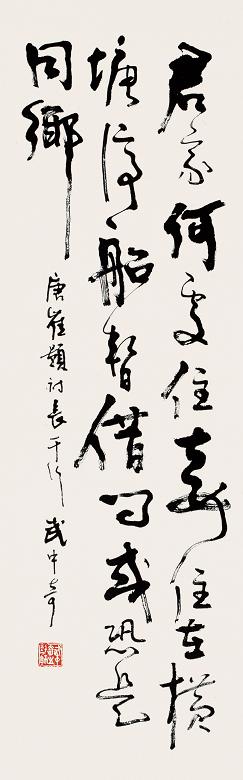 君家何處住妾住在橫
塘停船暫借問或恐是
同鄉
唐崔顥詩長干行 武中奇